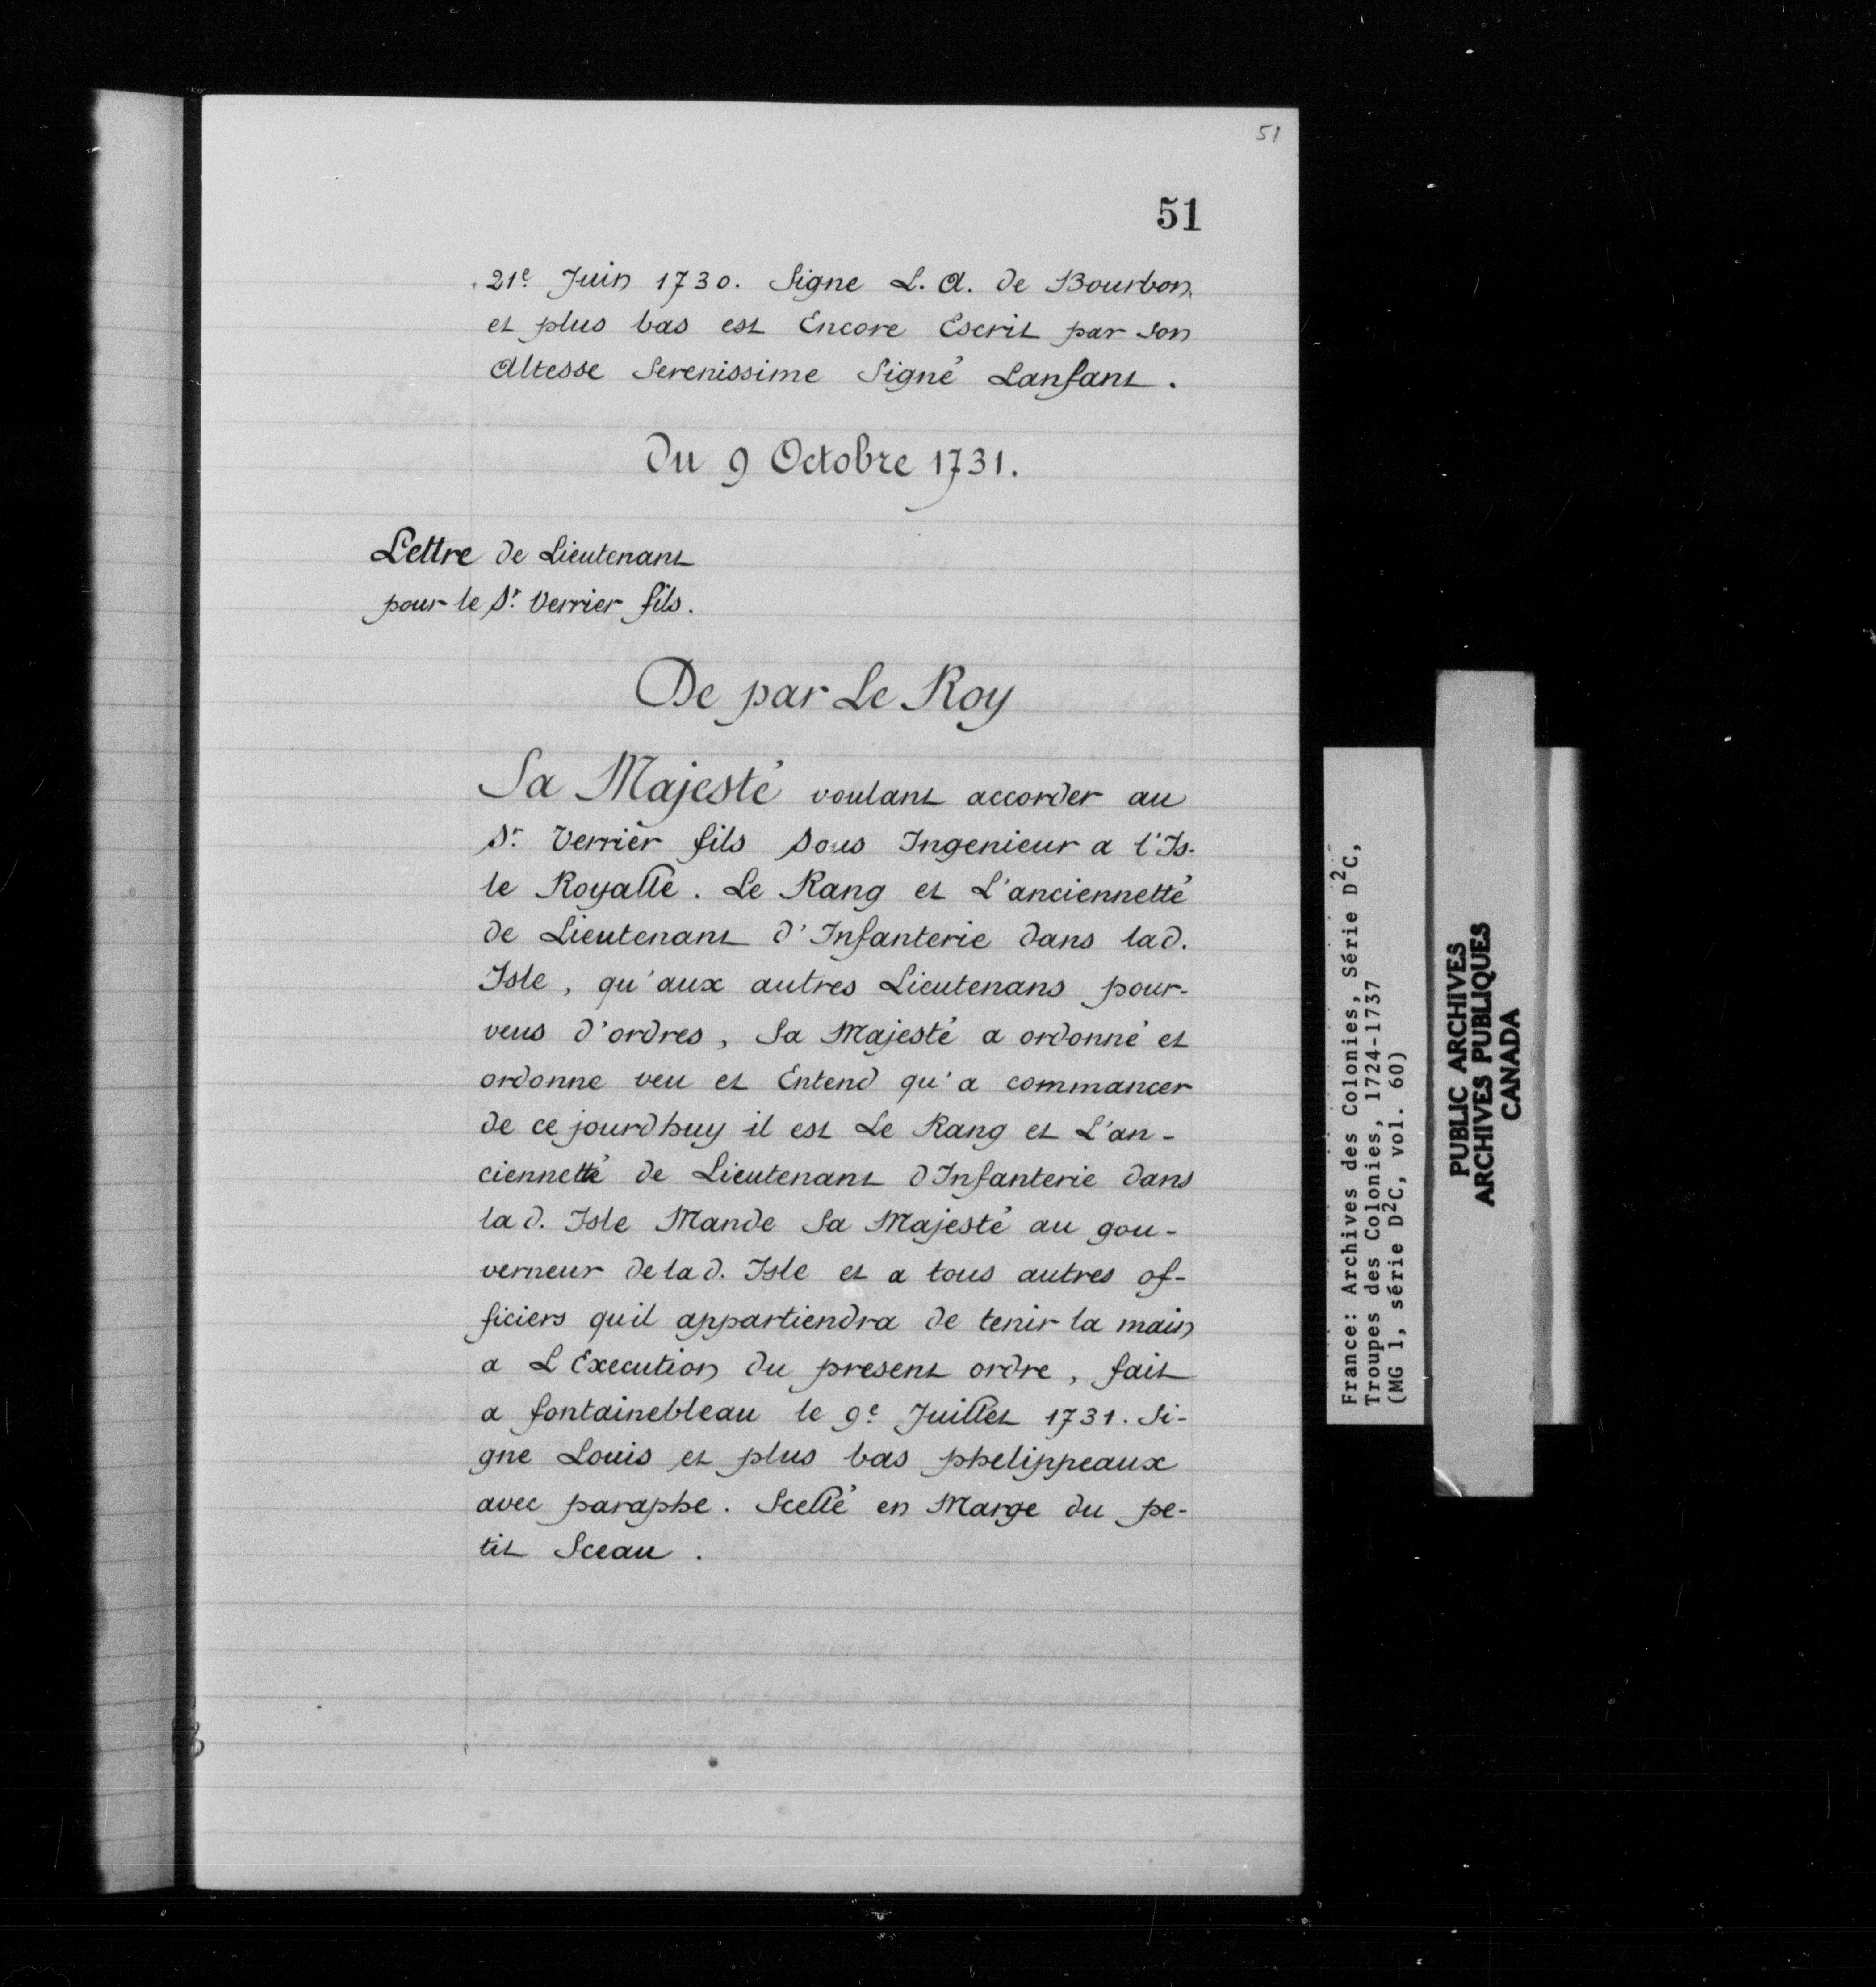 51
51
21e Juin 1730. Signe L. A. de Bourbon
et plus bas est Encore Escrit par son
Altesse Serenissime Signé Lanfant.
Du 9 Octobre 1731.
Lettre de Lieutenant
pour le Sr. Verrier fils.
De par Le Roy
Sa Majesté voulant accorder au
Sr. Verrier fils Sous Ingenieur a l'Is-
le Royalle. Le Rang et L'anciennetté
de Lieutenant d'Infanterie dans lad.
Isle, qu'aux autres Lieutenans pour-
veus d'ordres, Sa Majesté a ordonné et
ordonne veu et Entend qu'a commancer
de ce jourdhuy il est Le Rang et L'an-
ciennetté de Lieutenant dInfanterie dans
la d. Isle Mande Sa Majesté au gou-
verneur de la d. Isle et a tous autres of-
ficiers quil appartiendra de tenir la main
a L Execution du present ordre, fait
a fontainebleau le 9e Juillet 1731. Si-
gne Louis et plus bas phelippeaux
avec paraphe. Scellé en Marge du pe-
tit Sceau.
France: Archives des Colonies, Série D2C,
Troupes des Colonies, 1724-1737
(MG 1, série D2C, vol. 60)
PUBLIC ARCHIVES
ARCHIVES PUBLIQUES
CANADA